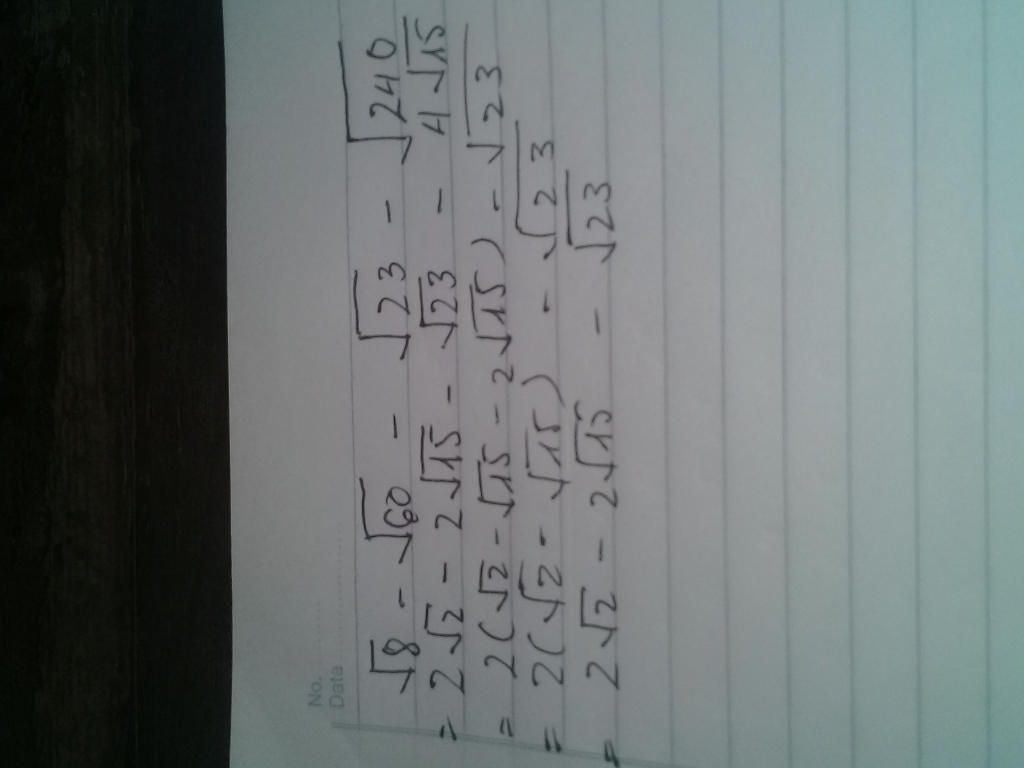 No.
Data
√8 - √60 - √23 - √240
= 2√2 - 2√15 - √23 - 4√15
= 2(√2 - √15 - 2√15) - √23
= 2(√2 - √15) - √23
= 2√2 - 2√15 - √23